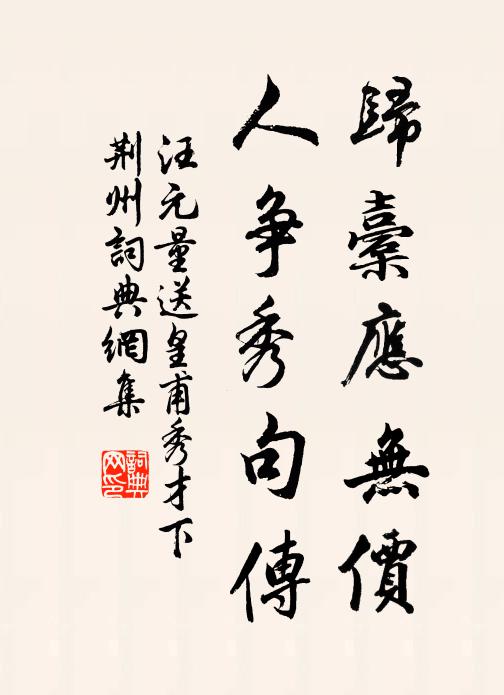 歸橐應無價
人爭秀句傳
汪元量送皇甫秀才下
荆州詞典網集
詞典网印